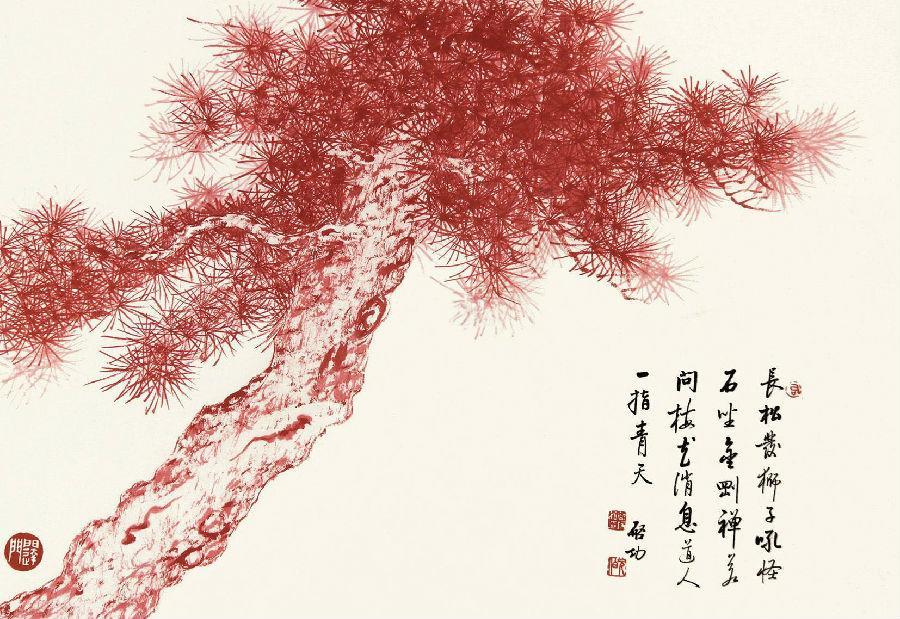 長松發獅子吼怪
石坐金剛禅若
問梅花消息道人
一指青天
啓功